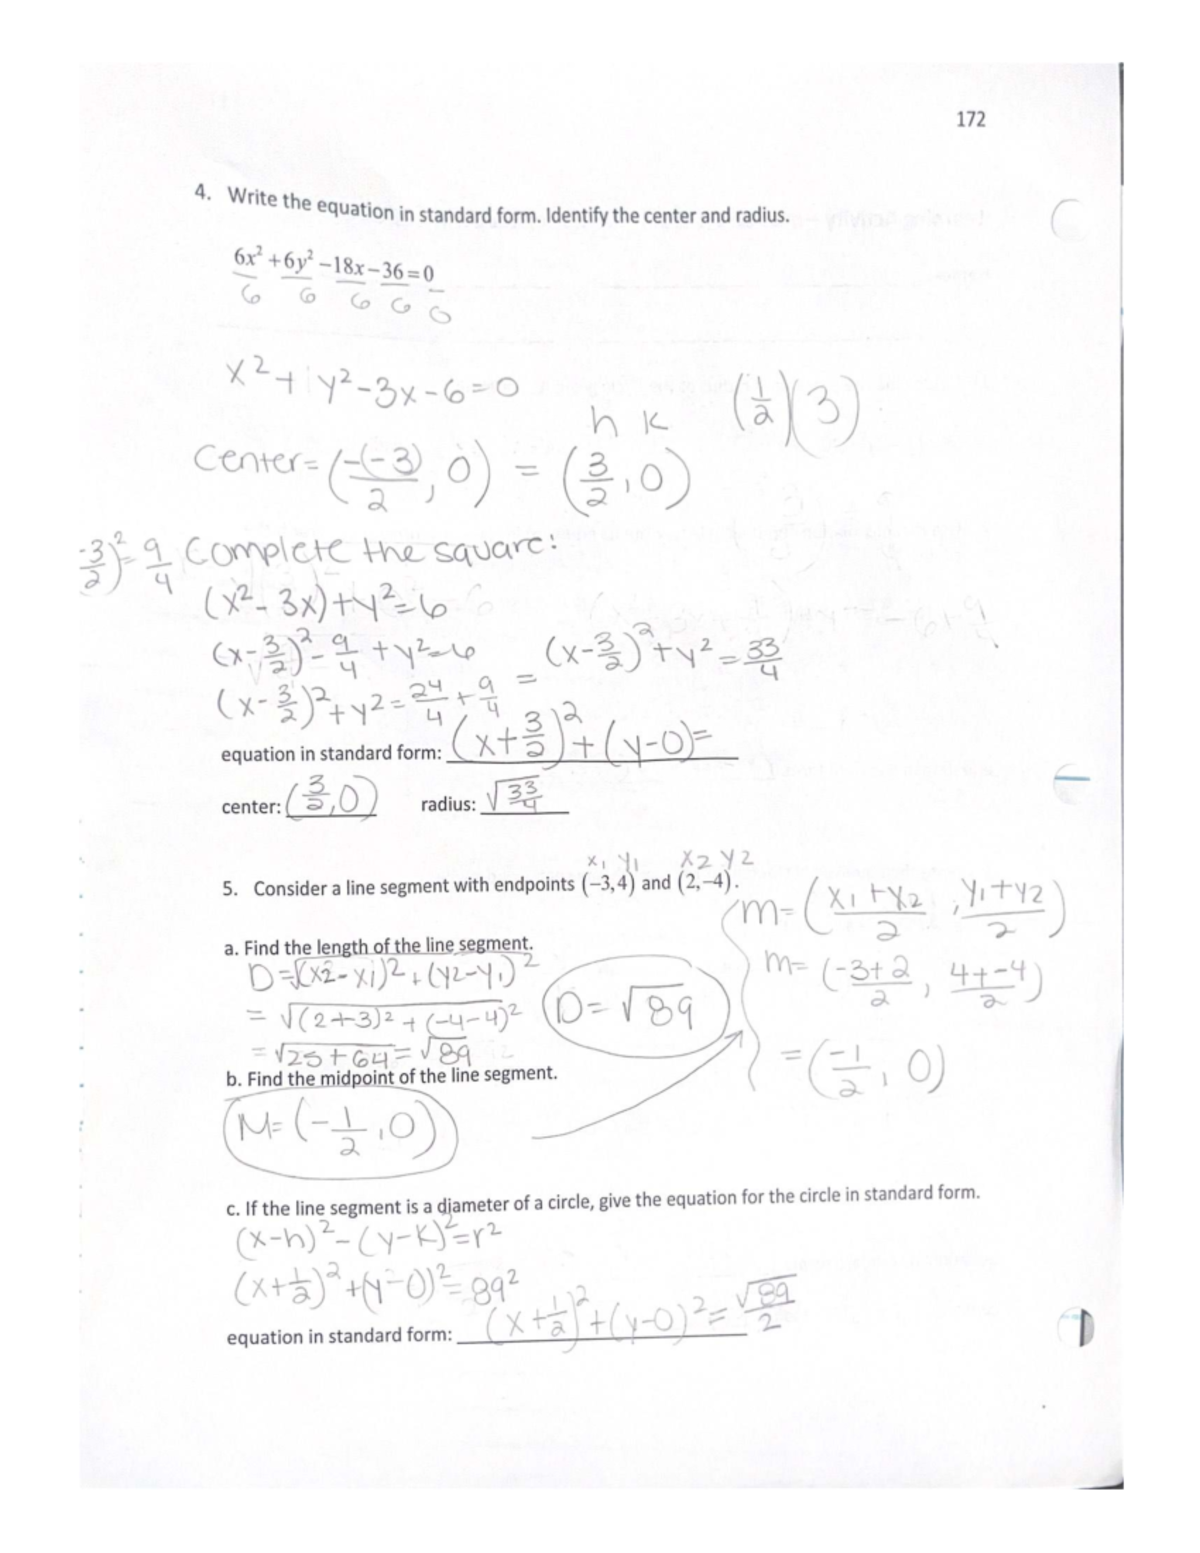 172
4. Write the equation in standard form. Identify the center and radius.
6x² + 6y² – 18x – 36 = 0
6 6 6 6 6
x² + y² - 3x - 6 = 0
h k (1/2)(3)
Center = (-(-3)/2, 0) = (3/2, 0)
-3/2)² = 9/4 Complete the square:
(x² - 3x) + y² = 6
(x - 3/2)² - 9/4 + y² = 6 (x - 3/2)² + y² = 33/4
(x - 3/2)² + y² = 24/4 + 9/4 =
equation in standard form: (x + 3/2)² + (y - 0) =
center: (3/2, 0) radius: √33/4
x₁ y₁ x2 y2
5. Consider a line segment with endpoints (–3,4) and (2,–4).
m = (x₁ + x₂/2, y₁ + y2/2)
a. Find the length of the line segment.
D = √(x2 - x1)² + (y2 - y₁)²
m = (-3 + 2/2, 4 + -4/2)
= √(2+3)² + (-4-4)² D = √89
= √25 + 64 = √89
= (-1/2, 0)
b. Find the midpoint of the line segment.
M = (-1/2, 0)
c. If the line segment is a diameter of a circle, give the equation for the circle in standard form.
(x-h)² - (y-k)² = r²
(x + 1/2)² + (y - 0)² = 89²
equation in standard form: (x + 1/2)² + (y - 0)² = √89/2